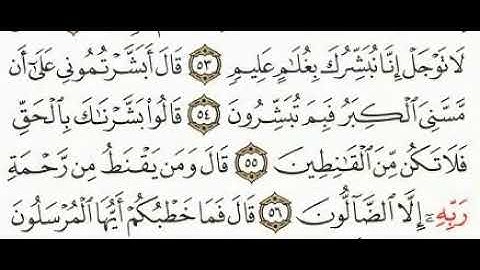 لَا تَوْجَلْ إِنَّا نُبَشِّرُكَ بِغُلَٰمٍ عَلِيمٍ ٥٣ قَالَ أَبَشَّرْتُمُونِي عَلَىٰٓ أَن
مَّسَّنِيَ ٱلْكِبَرُ فَبِمَ تُبَشِّرُونَ ٥٤ قَالُوا۟ بَشَّرْنَٰكَ بِٱلْحَقِّ
فَلَا تَكُن مِّنَ ٱلْقَٰنِطِينَ ٥٥ قَالَ وَمَن يَقْنَطُ مِن رَّحْمَةِ
رَبِّهِۦٓ إِلَّا ٱلضَّآلُّونَ ٥٦ قَالَ فَمَا خَطْبُكُمْ أَيُّهَا ٱلْمُرْسَلُونَ